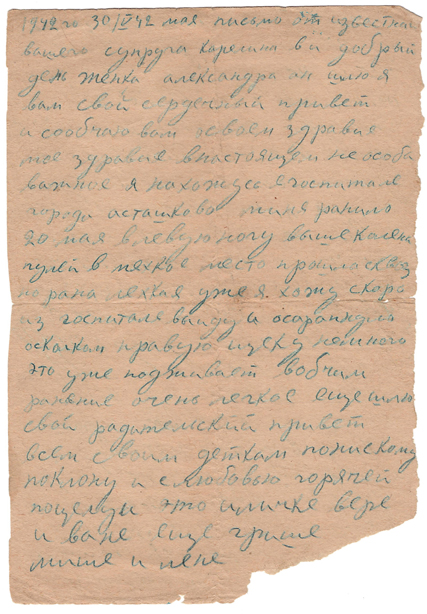 1942 го 30/V 42 мая письмо от известного
вашего супруга Карегина в й добрый
день женка александра ан шлю я
вам свой сердечный привет
и сообчаю вам освоем здравие
мое здравие внастоящем не особа
важное я нахожусь вгоспитале
города асташково миня ранило
20 мая в левую ногу выше колена
пулей в мяхкое место прошла сквоз
но рана лехкая уже я хожу скоро
из госпиталя выйду и осарапнуло
осколкам правую щеку немного
это уже поджывает вобчим
ранение очень легкое еще шлю
свой радительский привет
всем своим деткам понискому
поклону и слюбовью горячей
поцелуи это шучке вере
и ване еще грише
мише и лене